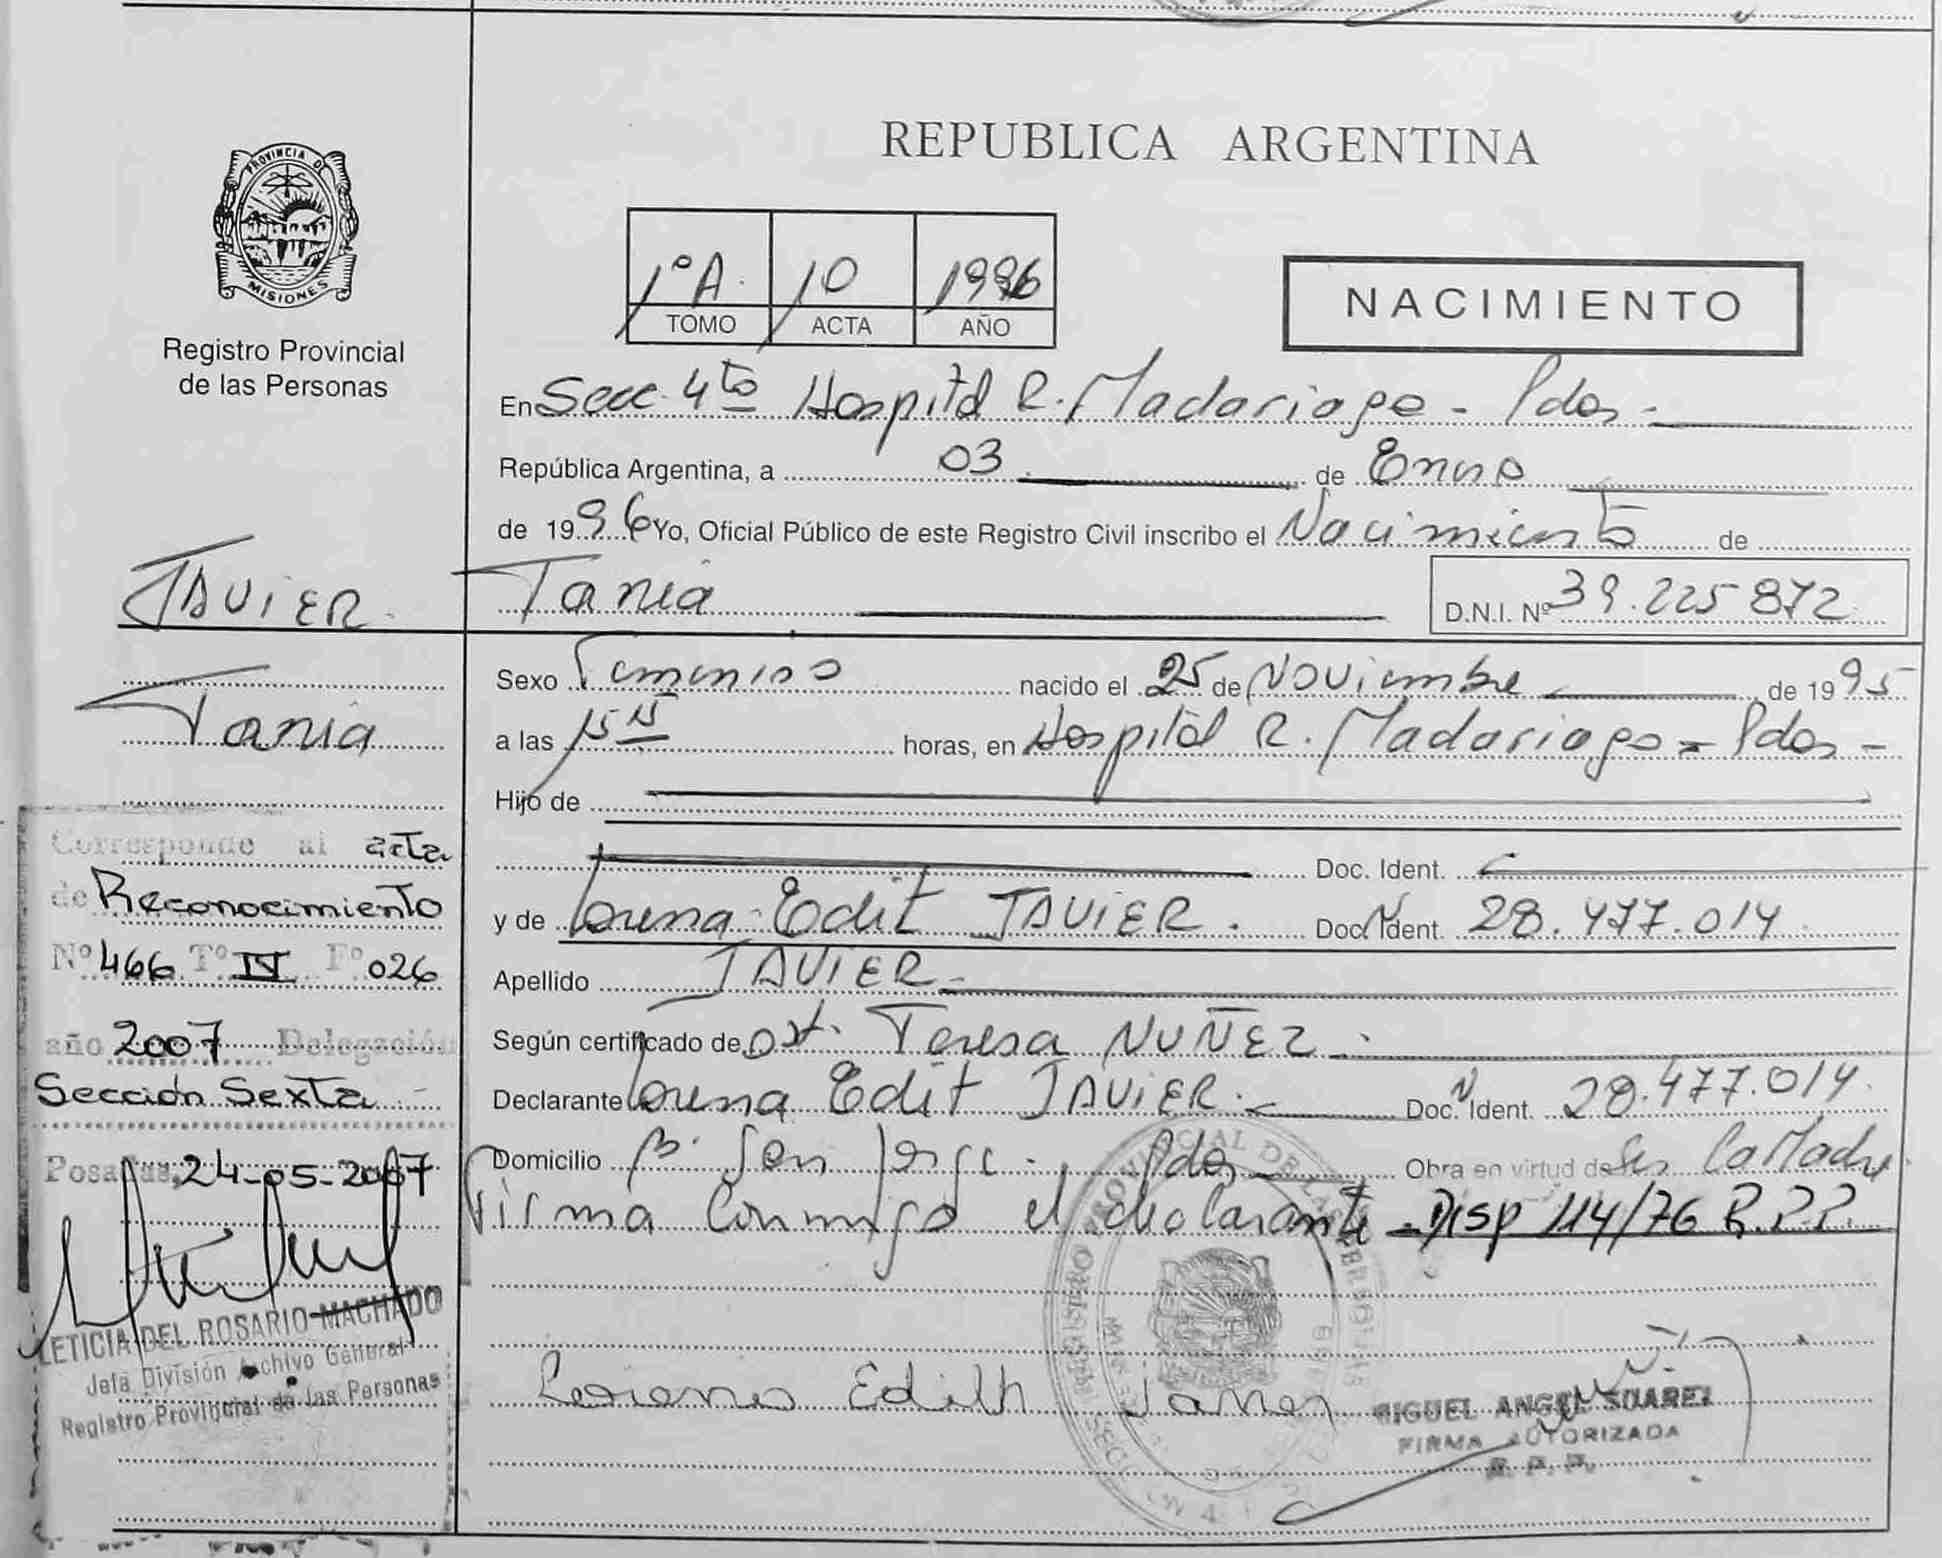 PROVINCIA DE
MISIONES
Registro Provincial
de las Personas
JAVIER
Tania
Corresponde al acta
de Reconocimiento
Nº 466 Tº IV Fº 026
año 2007 Delegación
Sección Sexta
Posadas, 24-05-2007
LETICIA DEL ROSARIO MACHADO
Jefa División Archivo General
Registro Provincial de las Personas
REPUBLICA ARGENTINA
1º A. 10 1996
TOMO ACTA AÑO
NACIMIENTO
En Secc. 4to Hospital R. Madariaga - Pdas -
República Argentina, a 03 de Enero
de 1996 Yo, Oficial Público de este Registro Civil inscribo el Nacimiento de
Tania D.N.I. Nº 39.225 872
Sexo Femenino nacido el 25 de Noviembre de 1995
a las 15 horas, en Hospital R. Madariaga - Pdas -
Hijo de
Doc. Ident.
y de Lorena Edit JAVIER. Doc. Ident. 28.477.014
Apellido JAVIER
Según certificado de Ost. Teresa NUÑEZ
Declarante Lorena Edit JAVIER. Doc. Ident. 28.477.014
Domicilio Bº San Jorge. Pdas Obra en virtud de Ser La Madre
Firma conmigo el declarante - Disp 114/76 R.P.P.
Edith
MIGUEL ANGEL SUAREZ
FIRMA AUTORIZADA
R. P. P.